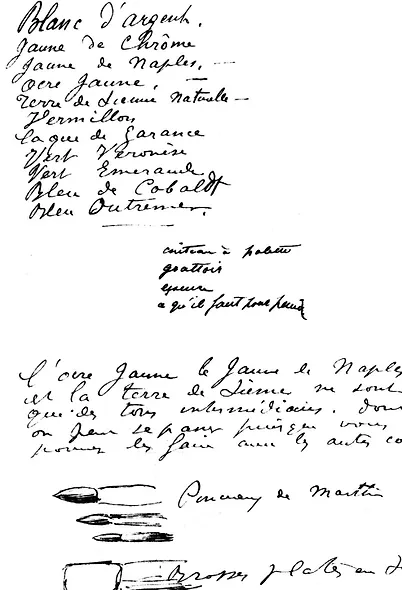 Blanc d'argent.
Jaune de Chrôme
Jaune de Naples. —
Ocre Jaune. —
Terre de Sienne Naturelle —
Vermillon
Laque de Garance
Vert Véronèse
Vert Emeraude
Bleu de Cobalt
Bleu Outremer.
couteau à palette
grattoir
essence
ce qu'il faut pour peindre
l'ocre Jaune le Jaune de Naples
et la terre de Sienne ne sont
que des tons intermédiaires. dont
on peut se passer puisque vous
pouvez les faire avec les autres co
Pinceaux de Marthe
Brosses plates en